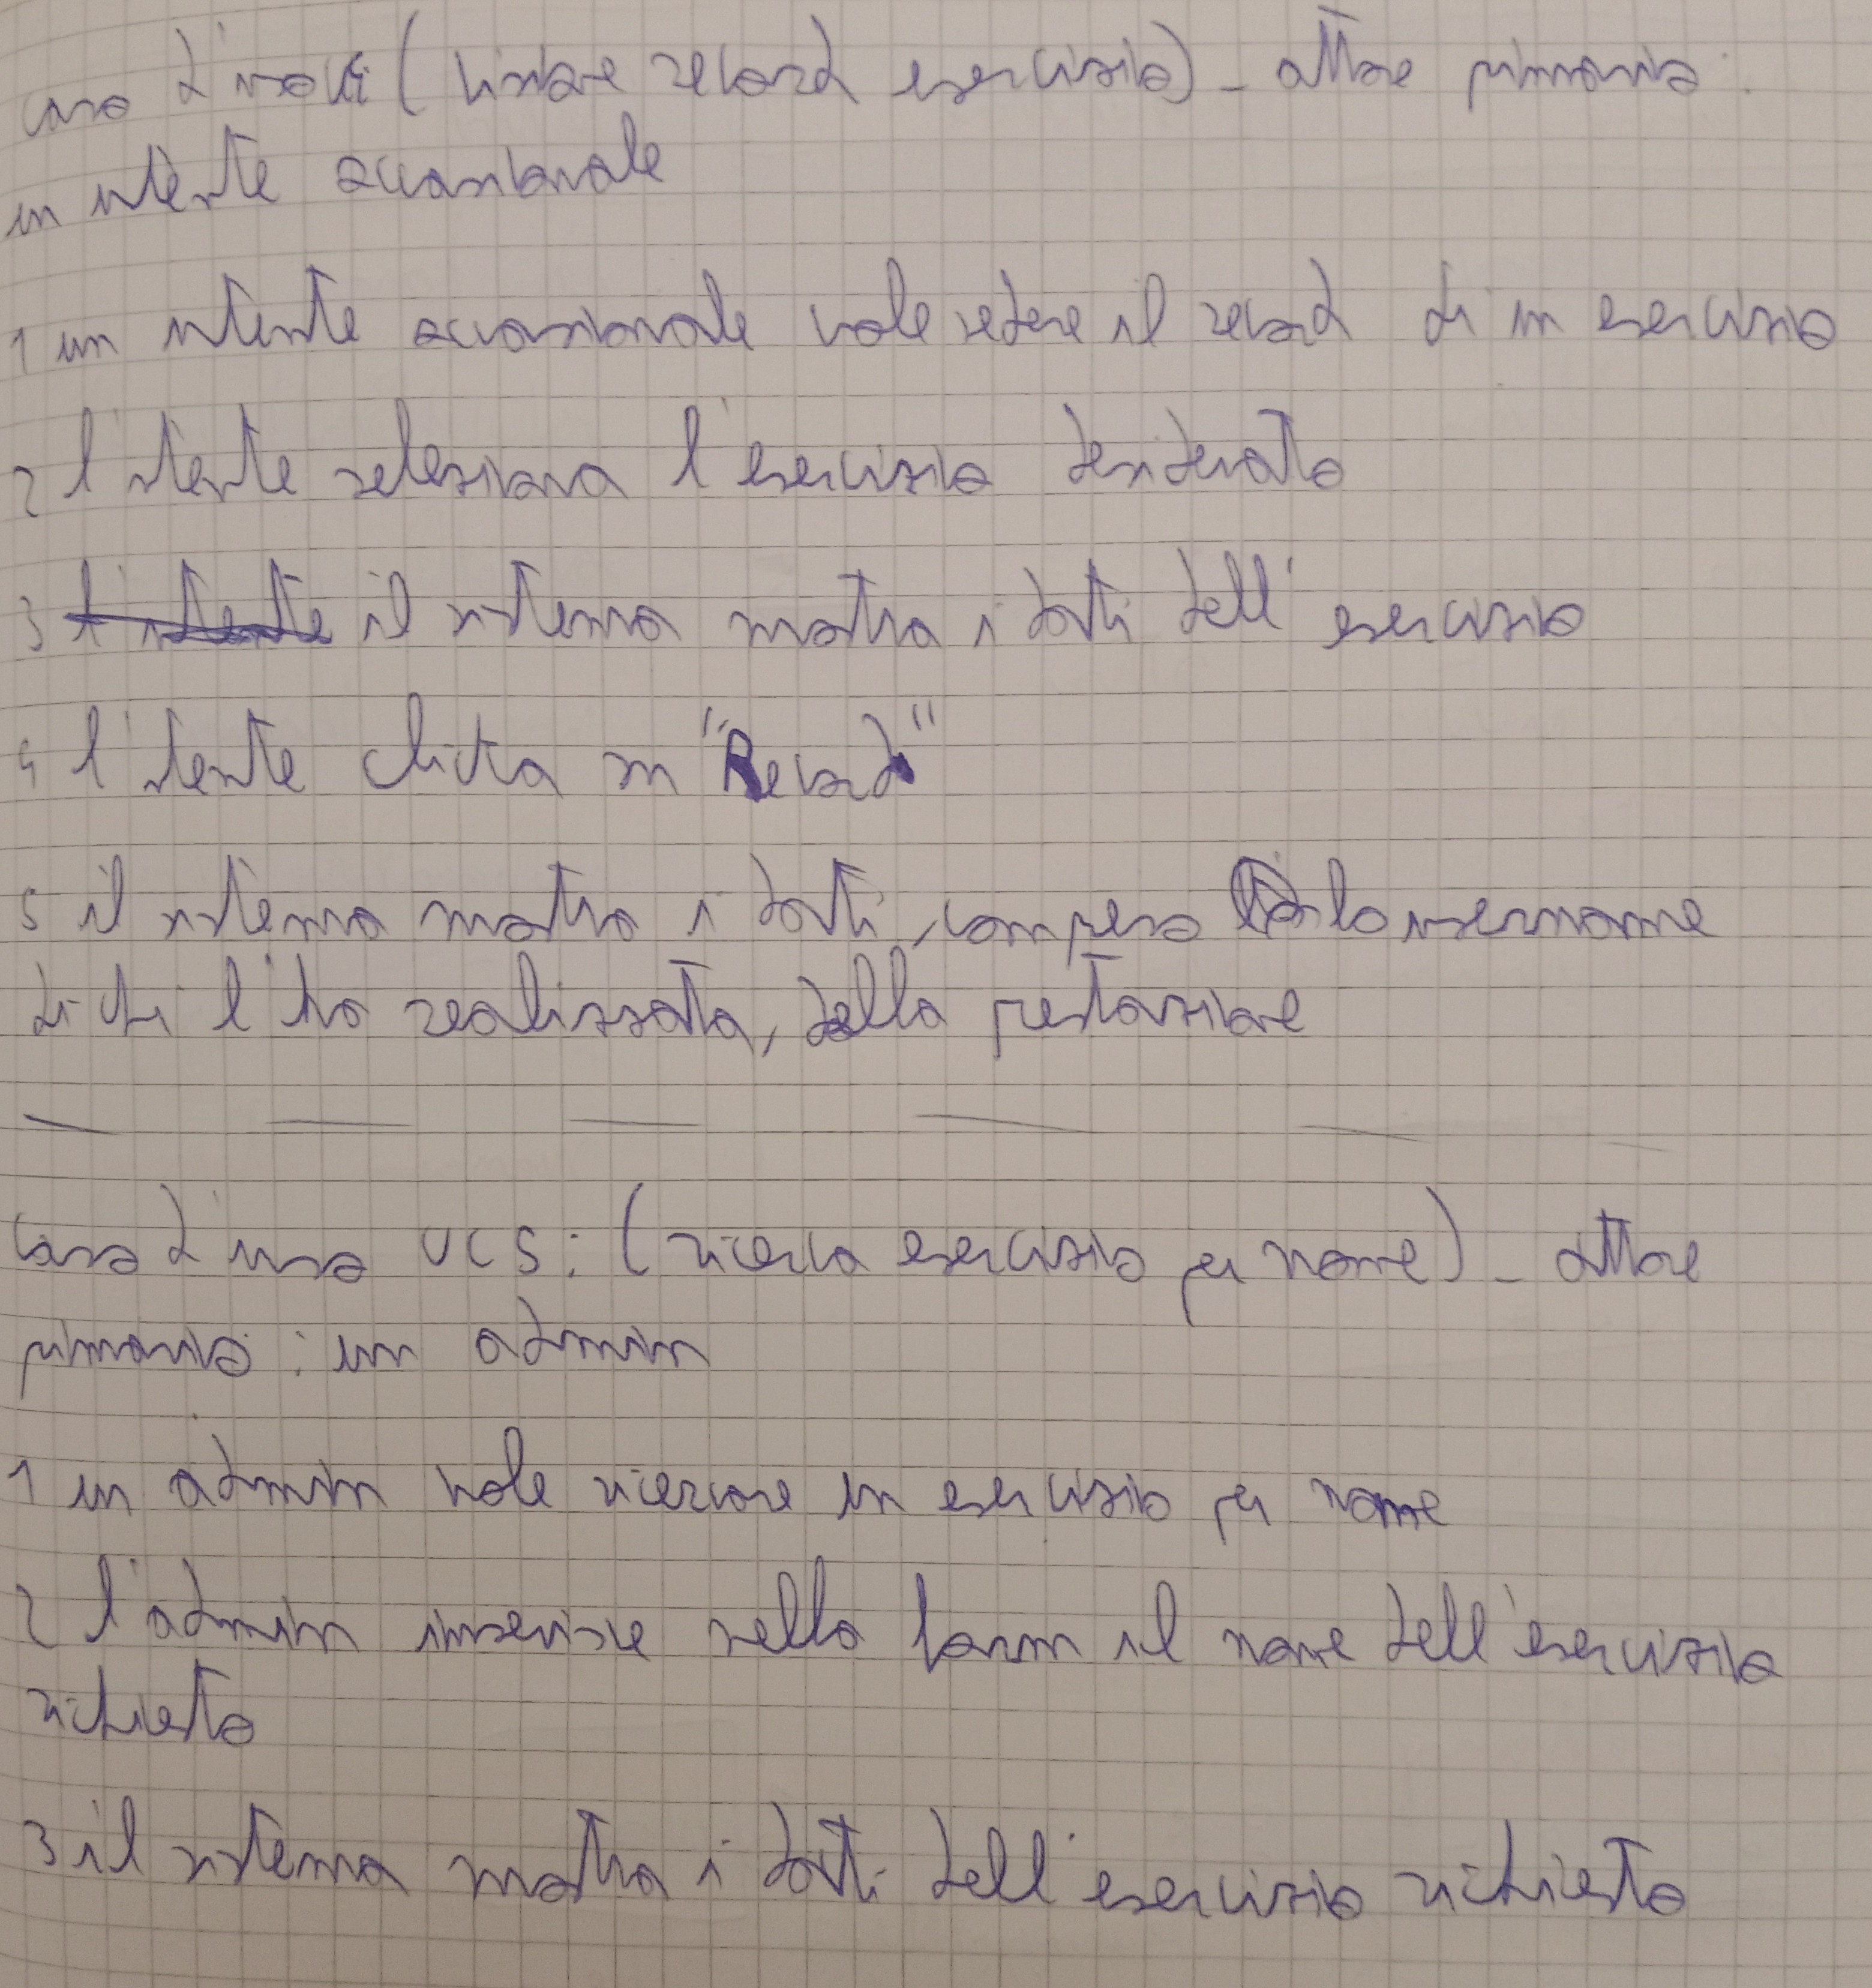 caso d'uso (visione record esercizio) - attore primario:
un utente occasionale
1 un utente occasionale vuole vedere il record di un esercizio
2 l'utente seleziona l'esercizio desiderato
3 il sistema mostra i dati dell'esercizio
4 l'utente clicca su "Record"
5 il sistema mostra i dati, compreso lo username
di chi l'ha realizzata, della prestazione
caso d'uso UC5: (ricerca esercizio per nome) - attore
primario: un admin
1 un admin vuole ricercare un esercizio per nome
2 l'admin inserisce nella form il nome dell'esercizio
richiesto
3 il sistema mostra i dati dell'esercizio richiesto